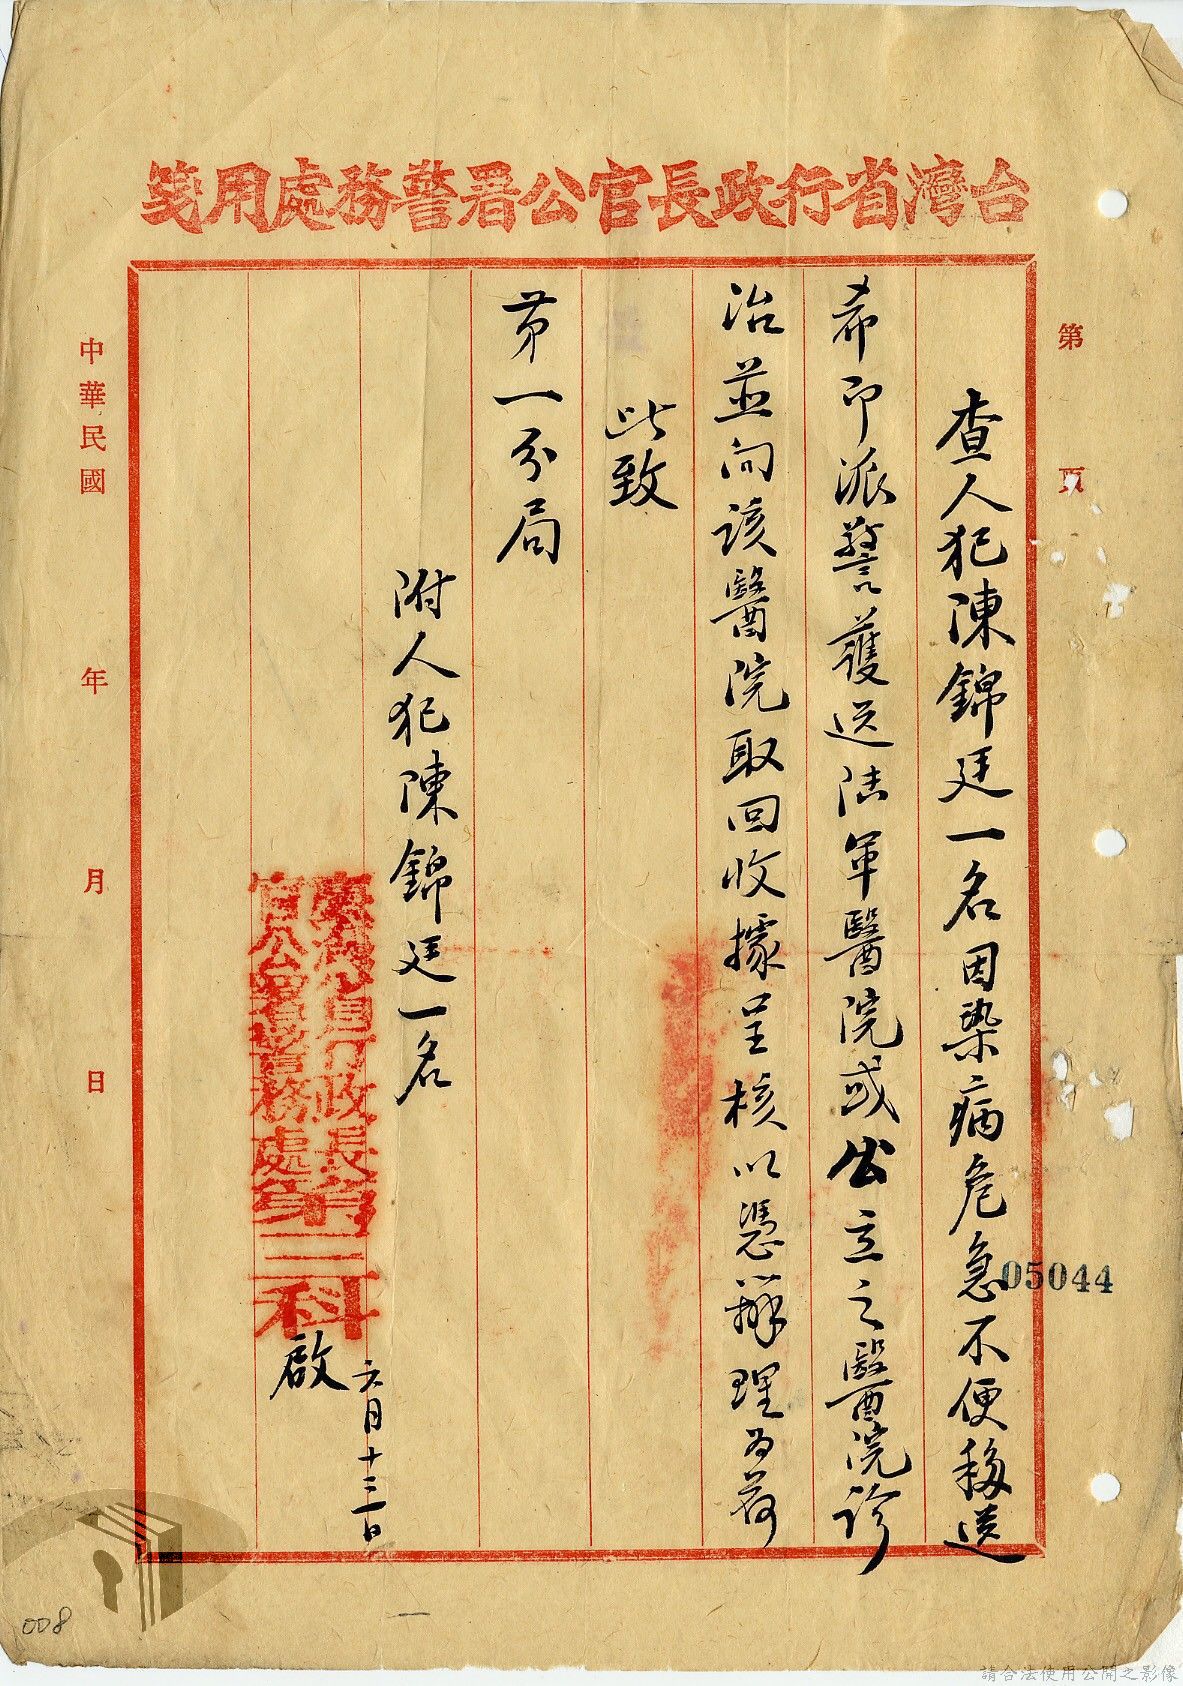 台灣省行政長官公署警務處用箋
第 頁
查人犯陳錦廷一名因染病危急不便移送
希即派警護送陸軍醫院或公立之醫院診
治並向該醫院取回收據呈核以憑辦理為荷
此致
第一分局
附人犯陳錦廷一名
臺灣省行政長
官公署警務處第三科
啟
六月十三日
中華民國 年 月 日
05044
008
請合法使用公開之影像